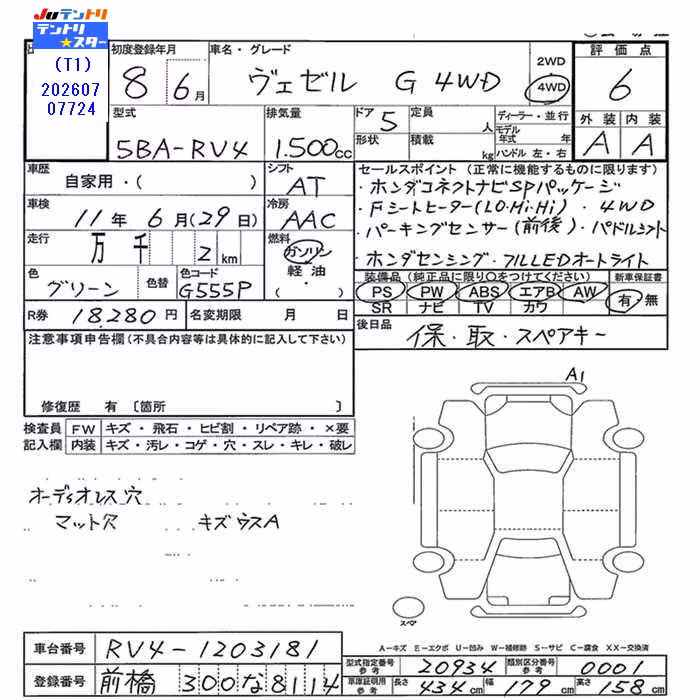 Juテントリ
テントリ
★スター
(T1)
202607
07724
初度登録年月
8 6月
車名・グレード
ヴェゼル G 4WD
2WD
4WD
評価点
6
外装 内装
A A
型式
5BA-RV4
排気量
1.500cc
ドア 5
形状
定員 人
積載 kg
ディーラー・並行
モデル年式 年
ハンドル 左・右
車歴
自家用・( )
シフト
AT
車検
11年 6月(29日)
冷房
AAC
走行
万 千 2 km
燃料
ガソリン
軽油
・( )
色
グリーン
色替
色コード
G555P
R券 18.280円
名変期限 月 日
セールスポイント (正常に機能するものに限ります)
・ホンダコネクトナビSPパッケージ
・Fシートヒーター(LO.Hi.Hi)・4WD
・パーキングセンサー(前後)・パドルシフト
・ホンダセンシング・フルLEDオートライト
装備品 (純正品に限り○をつけてください)
PS PW ABS エアB AW
SR ナビ TV カワ
新車保証書
有・無
後日品
保・取・スペアキー
注意事項申告欄(不具合内容等は具体的に記入して下さい)
修復歴 有 〔箇所 〕
検査員記入欄
FW キズ・飛石・ヒビ割・リペア跡・×要
内装 キズ・汚レ・コゲ・穴・スレ・キレ・破レ
オーディオレス穴
マット穴 キズウスA
A1
スペア
A-キズ E-エクボ U-凹み W-補修跡 S-サビ C-腐食 XX-交換済
車台番号 RV4-1203181
登録番号 前橋 300 な 8114
型式指定番号 参考 20934
類別区分番号 参考 0001
車庫証明用 参考 長さ 434cm 幅 179cm 高さ 158cm